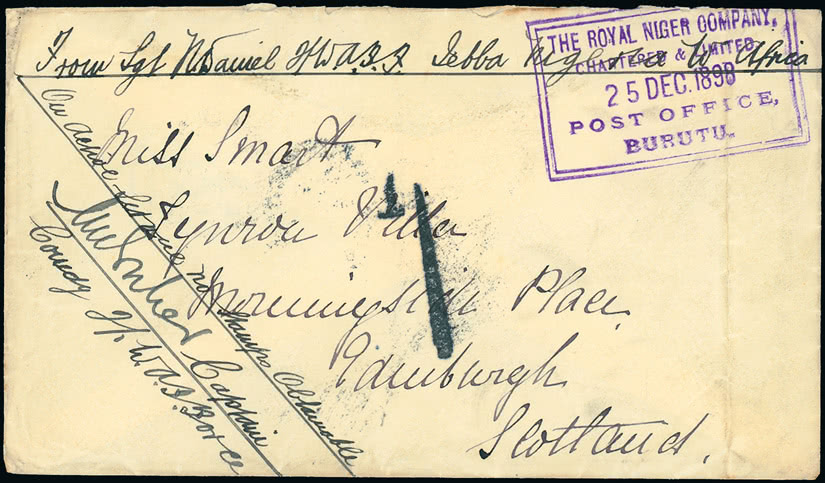 THE ROYAL NIGER COMPANY,
CHARTERED & LIMITED
25 DEC. 1898
POST OFFICE,
BURUTU.
From Sgt McDaniel W.A.F.F. Jebba Nigeria W. Africa
Miss Smart
Villa
Morningside Place
Edinburgh
Scotland.
1
On Active Service no Stamps Obtainable
Captain
Comdg W.A.F. Force